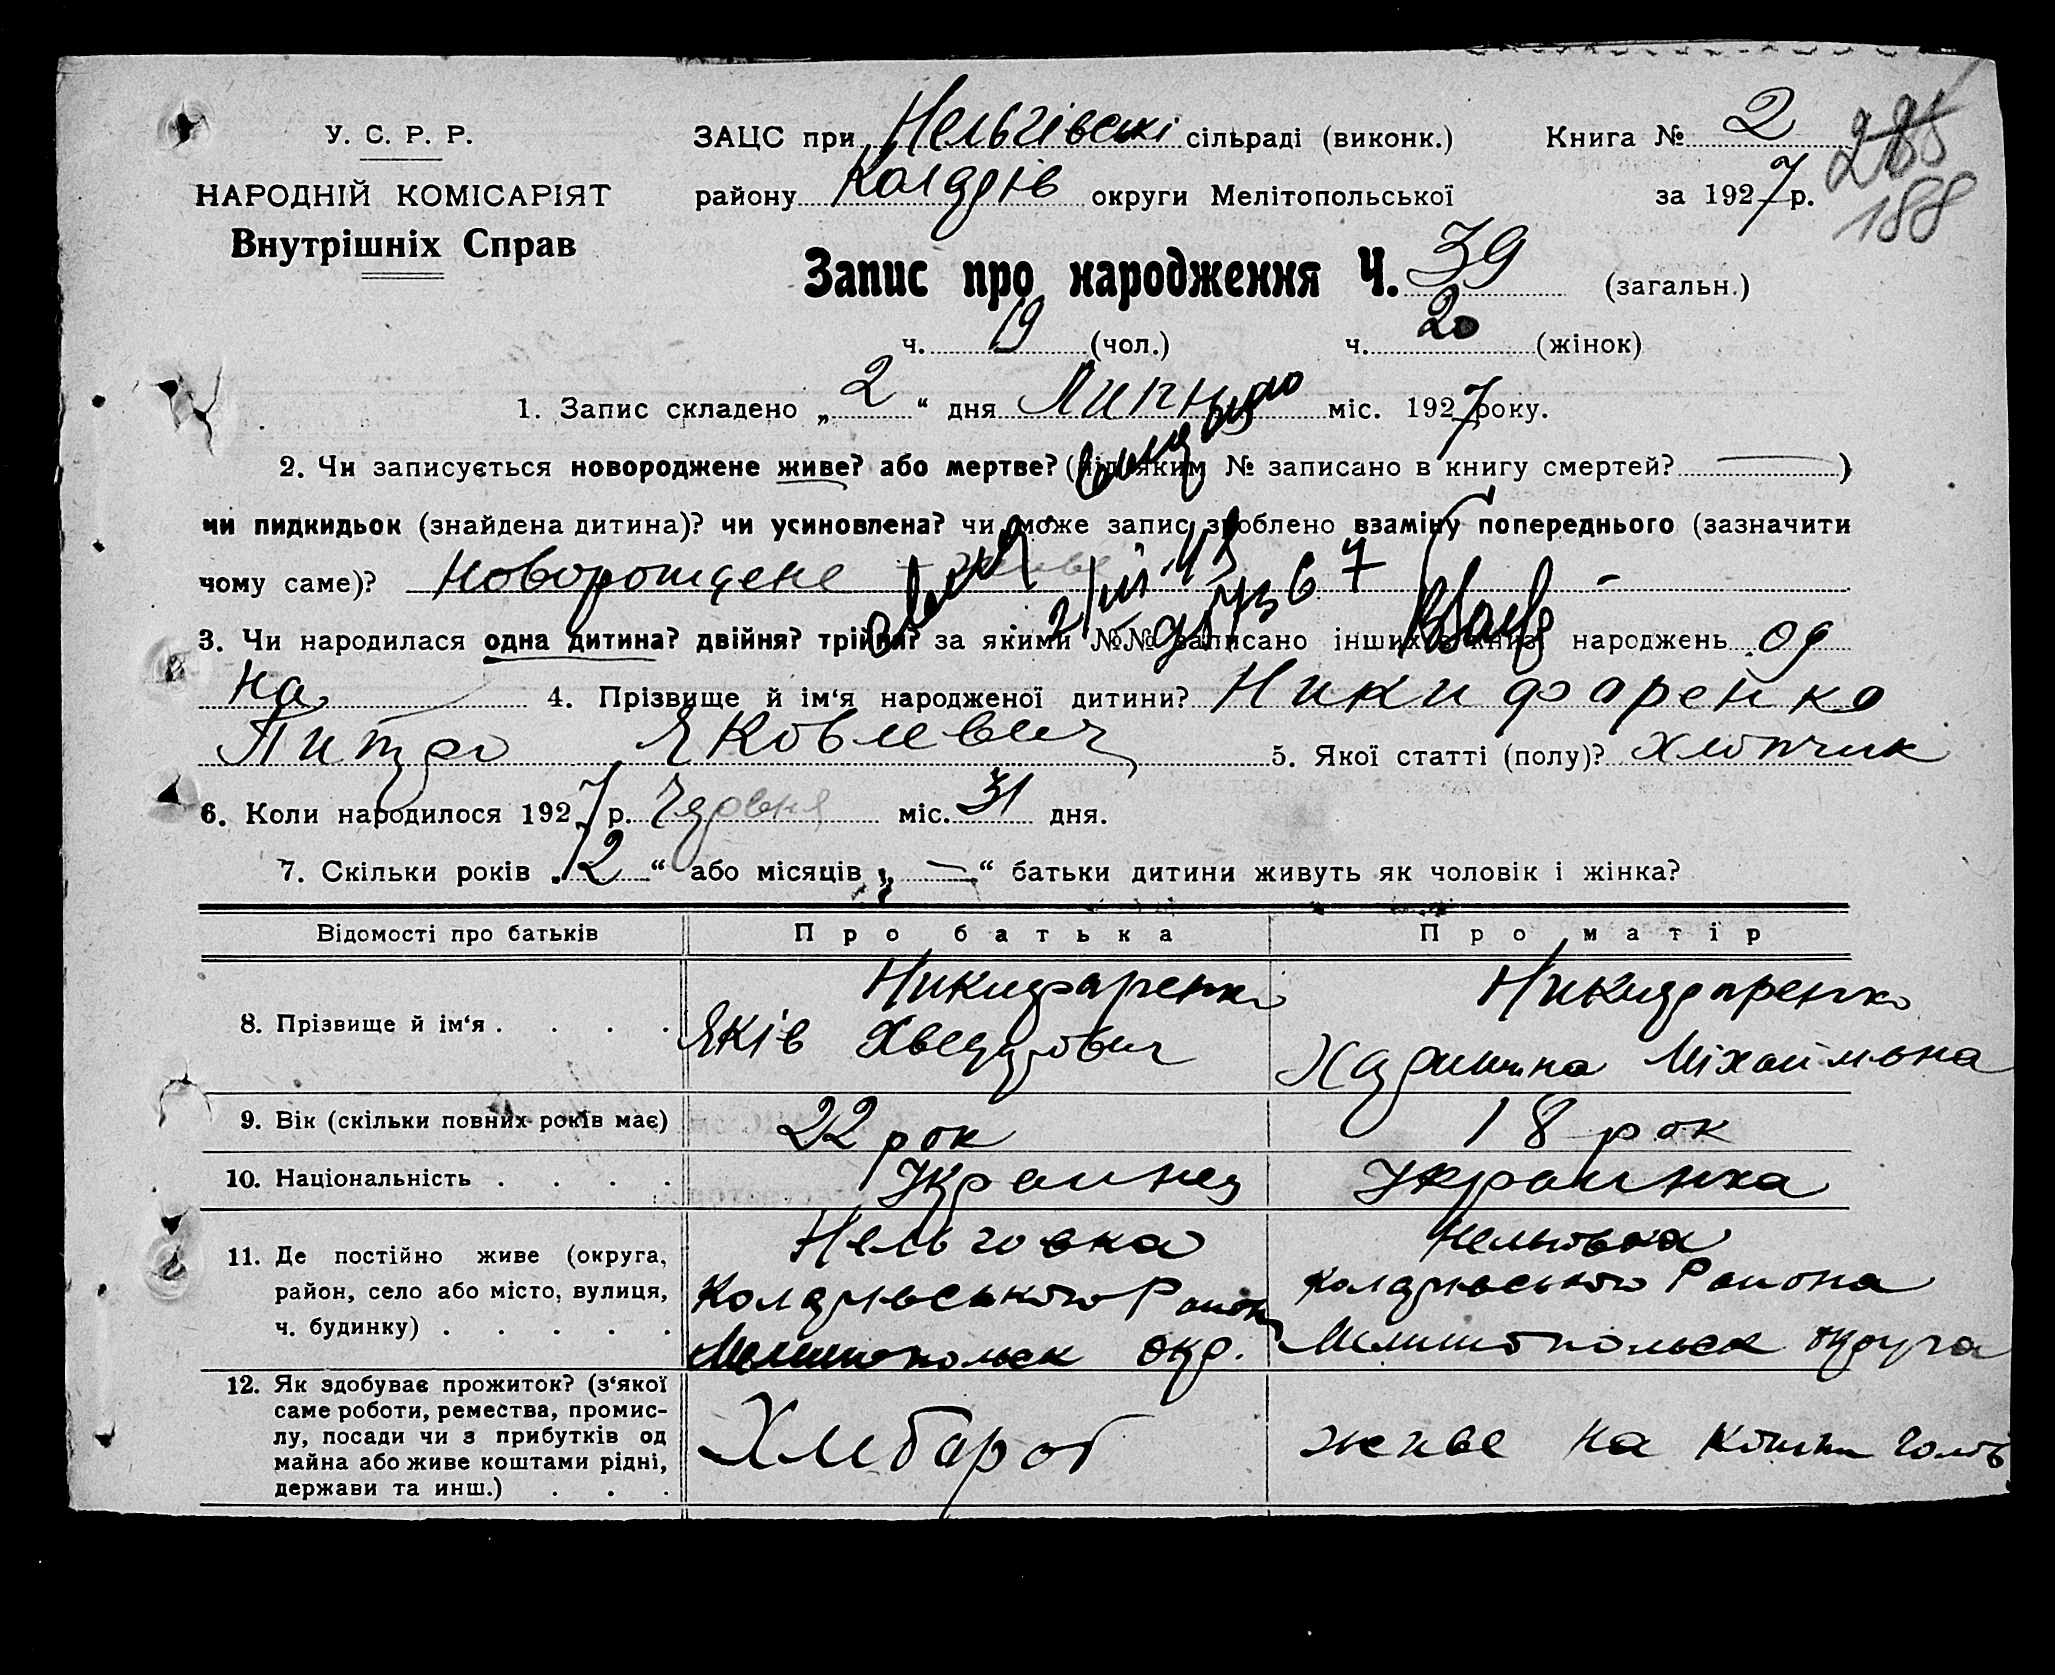 У. С. Р. Р.
НАРОДНІЙ КОМІСАРІЯТ
Внутрішніх Справ
ЗАЦС при Нельгівскі сільраді (виконк.) Книга № 2
285
району Колдрів округи Мелітопольської за 1927 р.
188
Запис про народження Ч. 39 (загальн.)
ч. 19 (чол.) ч. 20 (жінок)
1. Запис складено „2“ дня Липня міс. 1927 року.
2. Чи записується новороджене живе? або мертве? (під яким № записано в книгу смертей? —)
чи пидкидьок (знайдена дитина)? чи усиновлена? чи може запис зроблено взаміну попереднього (зазначити
чому саме)? Новорождене - живе
3. Чи народилася одна дитина? двійня? трійня? за якими №№ записано інших в книзі народжень од
на 4. Прізвище й ім‘я народженої дитини? Никифаренко
Питро Яковлевич 5. Якої статті (полу)? Хлопчик
6. Коли народилося 1927 р. Червня міс. 31 дня.
7. Скільки років „2“ або місяців „—“ батьки дитини живуть як чоловік і жінка?
Відомості про батьків Про батька Про матір
8. Прізвище й ім‘я . . . . Никифаренко Яків Хведорович Никифаренко Міхайлвна
9. Вік (скільки повних років має) 22 рок 18 рок
10. Національність . . . . Украинец Украинка
11. Де постійно живе (округа, Нельговка Нельговка
район, село або місто, вулиця, Колдрівського Район Колдрівського Района
ч. будинку) . . . . . Мелитопольск окр. Мелитопольск округа
12. Як здобуває прожиток? (з‘якої
саме роботи, ремества, промис-
лу, посади чи з прибутків од Хлибароб живе на
майна або живе коштами рідні,
держави та инш.) . . .